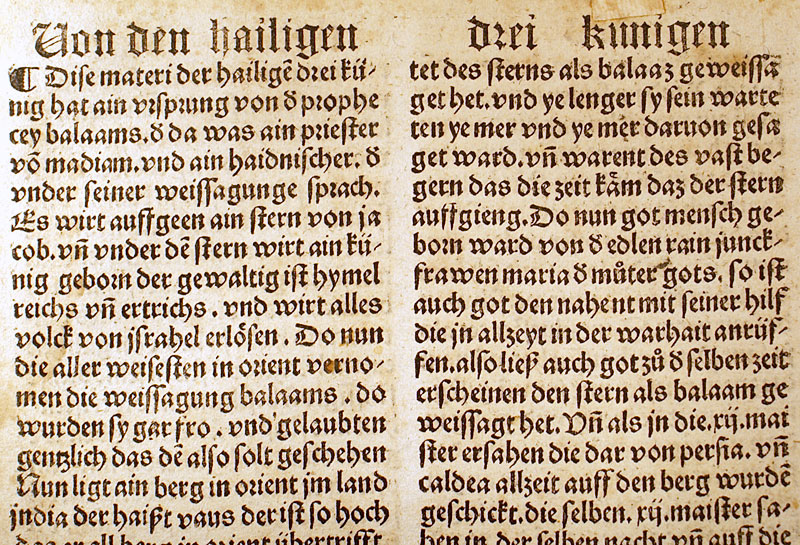 Von den hailigen drei kunigen
¶ Dise materi der hailigē drei kü-
nig hat ain vrsprung von d prophe
cey balaams. d da was ain priester
vō madiam. vnd ain haidnischer. d
vnder seiner weissagunge sprach.
Es wirt auffgeen ain stern von ja
cob. vñ vnder dē stern wirt ain kü-
nig geborn der gewaltig ist hymel
reichs vñ ertrichs. vnd wirt alles
volck von jsrahel erlösen. Do nun
die aller weisesten in orient verno-
men die weissagung balaams. do
wurden sy gar fro. vnd gelaubten
gentzlich das dē also solt geschehen
Nun ligt ain berg in orient jm land
jndia der haißt vaus der ist so hoch
das er all berg in orient übertrifft
tet des sterns als balaaz geweissa
get het. vnd ye lenger sy sein warte
ten ye mer vnd ye mer daruon gesa
get ward. vñ warent des vast be-
gern das die zeit käm daz der stern
auffgieng. Do nun got mensch ge-
born ward von d edlen rain junck-
frawen maria d můter gots. so ist
auch got den nahent mit seiner hilf
die jn allzeyt in der warhait anrüf-
fen. also ließ auch got zů d selben zeit
erscheinen den stern als balaam ge
weissagt het. Vñ als jn die. xij. mai
ster ersahen die dar von persia. vñ
caldea allzeit auff den berg wurdē
geschickt. die selben. xij. maister sa-
hen in der selben nacht vñ auff die